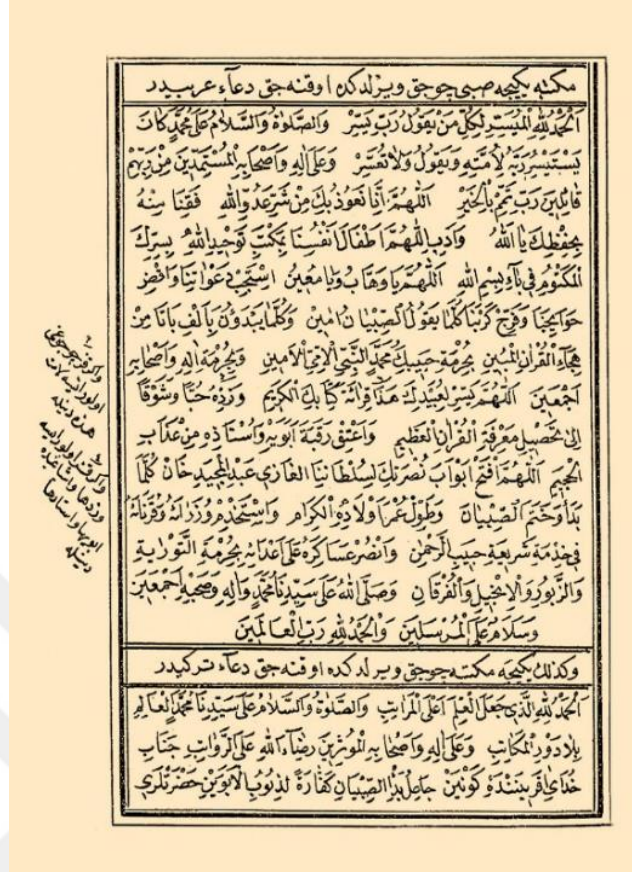 مكتبه يكيجه صبى چوجق ويرلدكده اوقنه جق دعاء عربيدر
اَلْحَمْدُ لِلّٰهِ الْمُيَسِّرِ لِكُلِّ مَنْ يَقُولُ رَبِّ يَسِّرْ وَالصَّلٰوةُ وَالسَّلَامُ عَلٰى مُحَمَّدٍ كَانَ
يَسْتَيْسِرُ رَبَّهُ لِاُمَّتِهِ وَيَقُولُ وَلَا تُعَسِّرْ وَعَلٰى اٰلِهِ وَاَصْحَابِهِ الْمُسْتَمِدِّينَ مِنْ رَبِّهِمْ
قَائِلِينَ رَبِّ تَمِّمْ بِالْخَيْرِ اَللّٰهُمَّ اِنَّا نَعُوذُ بِكَ مِنْ شَرِّ عَدُوِّ اللّٰهِ فَقِنَا مِنْهُ
بِحِفْظِكَ يَا اَللّٰهُ وَاَدِّبِ اللّٰهُمَّ اَطْفَالَ اَنْفُسِنَا بِمَكْتَبِ تَوْحِيدِ اللّٰهِ بِسِرِّكَ
الْمَكْتُومِ فِى بَاءِ بِسْمِ اللّٰهِ اَللّٰهُمَّ يَا وَهَّابُ وَيَا مُعِينُ اسْتَجِبْ دَعَوَاتِنَا وَاقْضِ
حَوَايِجَنَا وَفَرِّجْ كَرْبَنَا كُلَّمَا يَقُولُ الصِّبْيَانُ اٰمِينَ وَكُلَّمَا يَبْدَؤُنَ بِاَلِفْ بَاتَا مِنْ
هِجَاءِ الْقُرْاٰنِ الْمُبِينِ بِحُرْمَةِ حَبِيبِكَ مُحَمَّدٍ النَّبِىِّ الْاُمِّىِّ الْاَمِينِ وَبِحُرْمَةِ اٰلِهِ وَاَصْحَابِهِ
اَجْمَعِينَ اَللّٰهُمَّ يَسِّرْ لِعَبِيدِكَ هٰذَا قِرَائَةَ كِتَابِكَ الْكَرِيمِ وَزِدْهُ حُبًّا وَشَوْقًا
اِلٰى تَحْصِيلِ مَعْرِفَةِ الْقُرْاٰنِ الْعَظِيمِ وَاعْتِقْ رَقَبَةَ اَبَوَيْهِ وَاُسْتَاذِهِ مِنْ عَذَابِ
الْجَحِيمِ اَللّٰهُمَّ افْتَحْ اَبْوَابَ نُصْرَتِكَ لِسُلْطَانِنَا الْغَازِى عَبْدِ الْمَجِيدْ خَانْ كُلَّمَا
بَدَأَ وَخَتَمَ الصِّبْيَانُ وَطَوِّلْ عُمْرَ اَوْلَادِهِ الْكِرَامِ وَاسْتَخْدِمْ وُزَرَائَهُ وَقُرَنَائَهُ
فِى خِدْمَةِ شَرِيعَةِ حَبِيبِ الرَّحْمٰنِ وَانْصُرْ عَسَاكِرَهُ عَلٰى اَعْدَائِهِ بِحُرْمَةِ التَّوْرٰيةِ
وَالزَّبُورِ وَالْاِنْجِيلِ وَالْفُرْقَانِ وَصَلَّى اللّٰهُ عَلٰى سَيِّدِنَا مُحَمَّدٍ وَاٰلِهِ وَصَحْبِهِ اَجْمَعِينَ
وَسَلَامٌ عَلَى الْمُرْسَلِينَ وَالْحَمْدُ لِلّٰهِ رَبِّ الْعَالَمِينَ
وكذلك يكيجه مكتبه چوجق ويرلدكده اوقنه جق دعاء تركيدر
اَلْحَمْدُ لِلّٰهِ الَّذِى جَعَلَ الْعِلْمَ اَعْلَى الْمَرَاتِبِ وَالصَّلٰوةُ وَالسَّلَامُ عَلٰى سَيِّدِنَا مُحَمَّدٍ الْعَالِمِ
بِلَا دَوْرِ الْمَكَاتِبِ وَعَلٰى اٰلِهِ وَاَصْحَابِهِ الْمُوْثِرِينَ رِضَاءَ اللّٰهِ عَلَى الرَّوَاتِبِ جَنَابِ
خُدَاىِ اٰفَرِينَنْدَهٔ كَوْنَيْنْ جَاعِلُ بَدْاِ الصِّبْيَانِ كَفَّارَةً لِذُنُوبِ الْاَبَوَيْنِ حَضْرَتْلَرِى
واكر قز چوجوغى
اولور ايسه